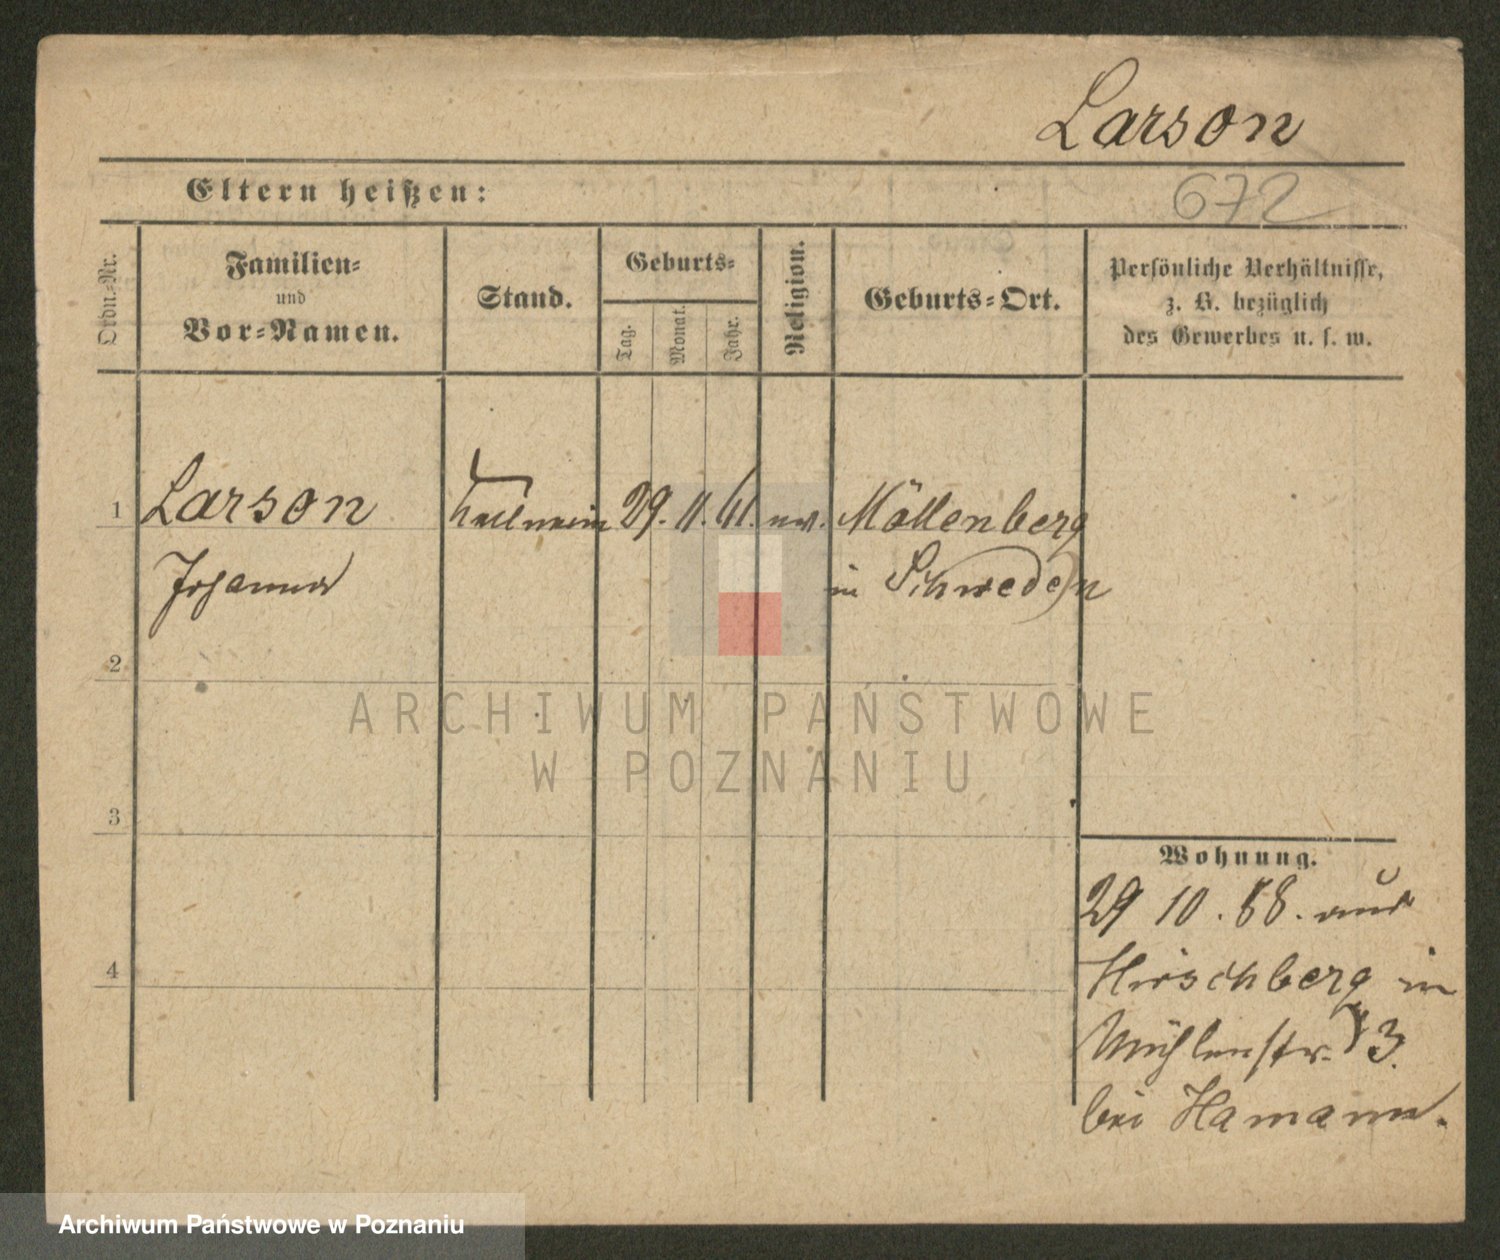 Larson
Eltern heißen:
672
Ordn.-Nr.
Familien-
und
Vor-Namen.
Stand.
Geburts-
Tag.
Monat.
Jahr.
Religion.
Geburts-Ort.
Persönliche Verhältnisse,
z. B. bezüglich
des Gewerbes u. s. w.
1
Larson
29. 11. 61.
Möllenberg
Johanna
in Schweden
2
ARCHIWUM PAŃSTWOWE
W POZNANIU
3
Wohnung.
29 10. 88. aus
Hirschberg in
4
Mühlenstr. 3.
bei Hamann.
Archiwum Państwowe w Poznaniu